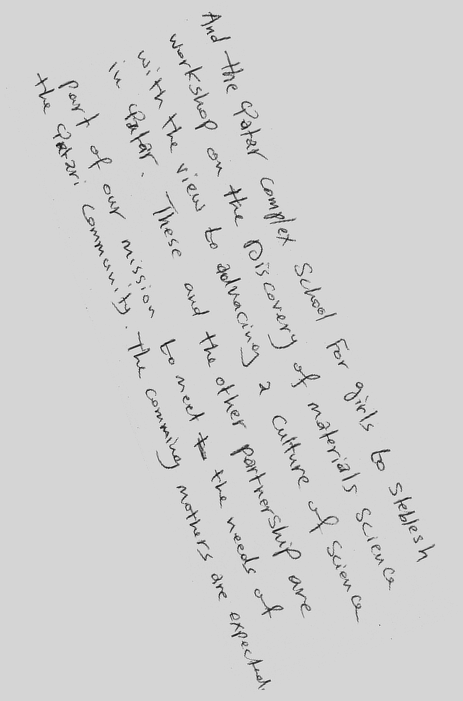 And the Qatar complex School for girls to steblesh
workshop on the Discovery of materials science
with the view to advnacing a culture of science
in Qatar. These and the other partnership are
part of our mission to meet the needs of
the Qatari community. The comming mothers are expected.